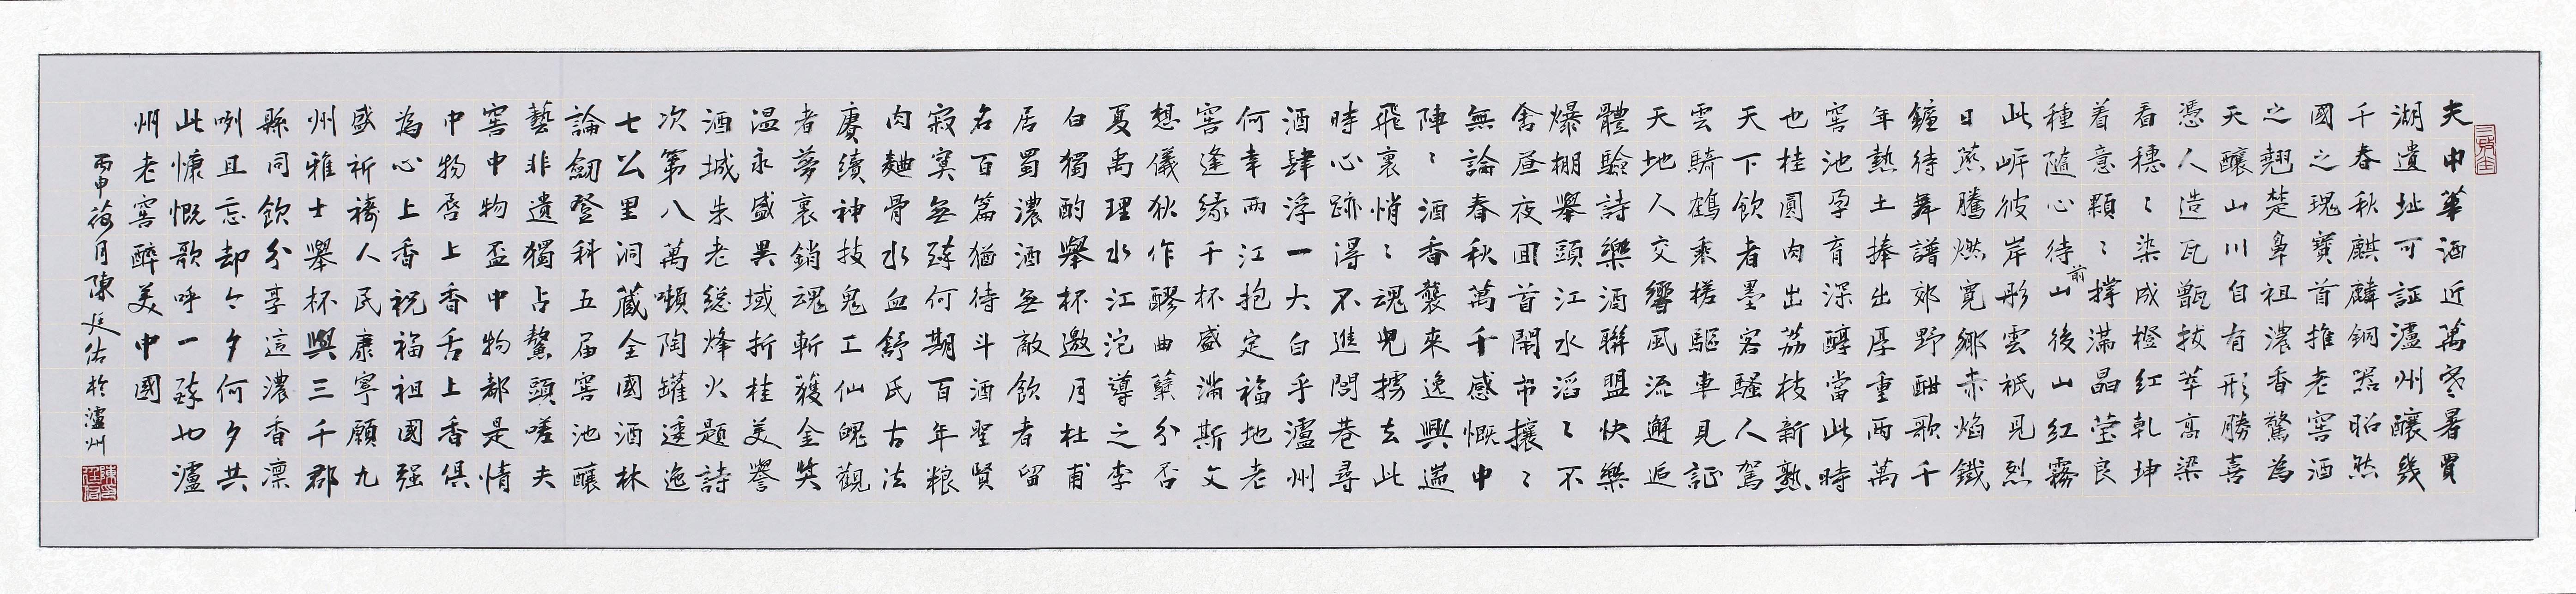 夫中華酒近萬寒暑賈
湖遺址可証瀘州釀幾
千春秋麒麟銅器昭然
國之瑰寶首推老窖酒
之翹楚鼻祖濃香驚為
天釀山川自有形勝喜
憑人造瓦甑拔萃高梁
看穗〻染成橙紅乹坤
着意顆〻撑滿晶瑩良
種隨心待前山後山紅霧
此岍彼岸彤雲祇見烈
日蒸騰燃寬鄉赤焰鐵
鐘待舞譜郊野酣歌千
年熱土捧出厚重兩萬
窖池孕育深醇當此時
也桂圓肉出荔枝新熟
天下飲者墨客騷人駕
雲騎鶴乘槎驅車見証
天地人交響風流邂逅
體驗詩樂酒聯盟快樂
爆棚舉頭江水滔〻不
舍昼夜回首鬧市攘〻
無論春秋萬千感慨中
陣〻酒香襲來逸興遄
飛裏悄〻魂兒擄去此
時心跡得不進問巷尋
酒肆浮一大白乎瀘州
何幸兩江抱定福地老
窖逢緣千杯盛滿斯文
想儀狄作醪曲櫱分否
夏禹理水江沱導之李
白獨酌舉杯邀月杜甫
居蜀濃酒無敵飲者留
名百篇猶待斗酒聖賢
寂寞無醉何期百年粮
肉麯骨水血舒氏古法
賡續神技鬼工仙魄觀
者夢裏銷魂斬獲金獎
温永盛異域折桂美譽
酒城朱老総烽火題詩
次第八萬噸陶罐逶迤
七公里洞藏全國酒林
論劒登科五届窖池釀
藝非遺獨占鰲頭嗟夫
窖中物盃中物都是情
中物唇上香舌上香俱
為心上香祝福祖國强
盛祈禱人民康寧願九
州雅士舉杯與三千郡
縣同飲分享這濃香凛
咧且忘却今夕何夕共
此慷慨歌呼一醉也瀘
州老窖醉美中國
丙申荷月陳廷佑於瀘州